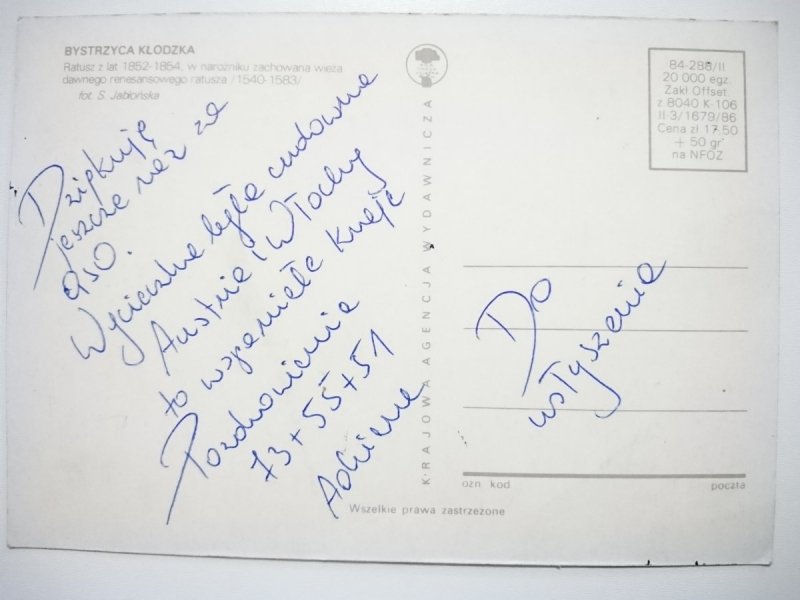 BYSTRZYCA KŁODZKA
Ratusz z lat 1852-1854, w narożniku zachowana wieża
dawnego renesansowego ratusza /1540-1583/
fot. S. Jabłońska
Dziękuję
jeszcze raz za
QSO.
Wycieczka była cudowna
Austria i Włochy
to wspaniałe kraje
Pozdrowienia
73+55+51
KRAJOWA AGENCJA WYDAWNICZA
84-288/II
20 000 egz.
Zakł Offset.
z 8040 K-106
II-3/1679/86
Cena zł 17·50
+ 50 gr
na NFOZ
Do
usłyszenia
ozn. kod poczta
Wszelkie prawa zastrzeżone